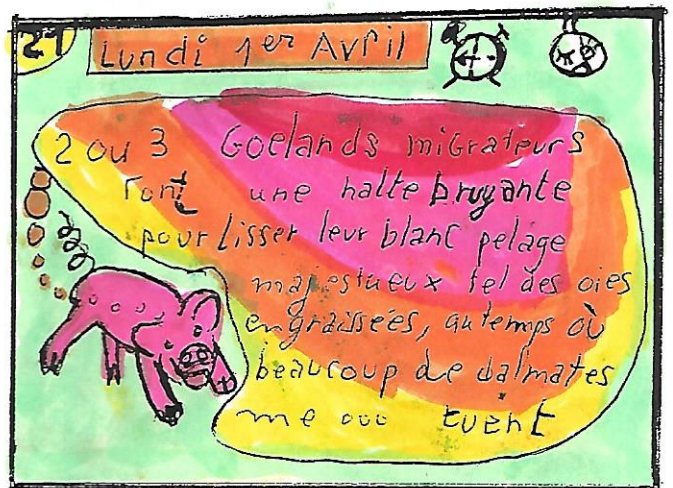 21
Lundi 1er Avril
2 ou 3 Goelands migrateurs
font une halte bruyante
pour lisser leur blanc pelage
majestueux tel des oies
engraissées, au temps où
beaucoup de dalmates
me ooo